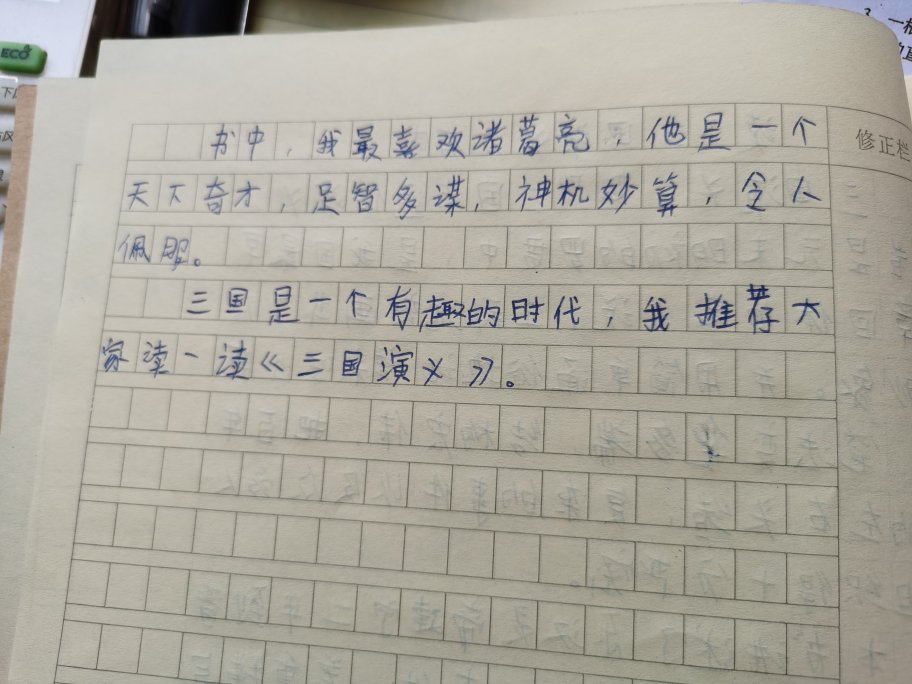 ECO
修正栏
书中，我最喜欢诸葛亮，他是一个
天下奇才，足智多谋，神机妙算，令人
佩服。
三国是一个有趣的时代，我推荐大
家读一读《三国演义》。